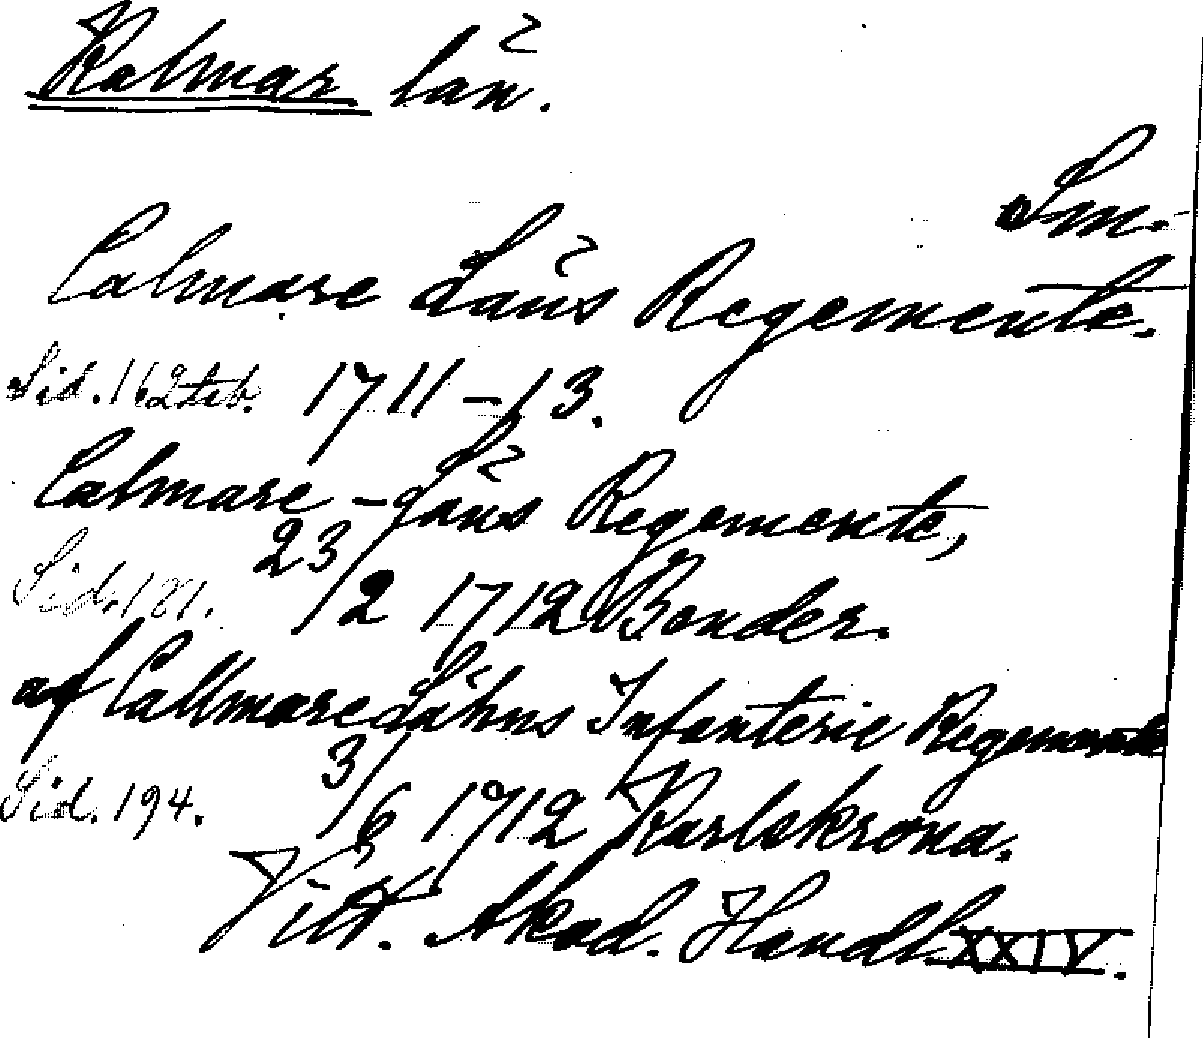 Kalmar län.
Sm.
Calmare Läns Regemente.
Sid. 162 1711-13.
Calmare-Läns Regemente,
Sid. 181. 23/2 1712 Bender.
af Callmare Lähns Infanterie Regemente
Sid. 194. 3/6 1712 Karlskrona.
Vitt. Akad. Handl. XXIV.